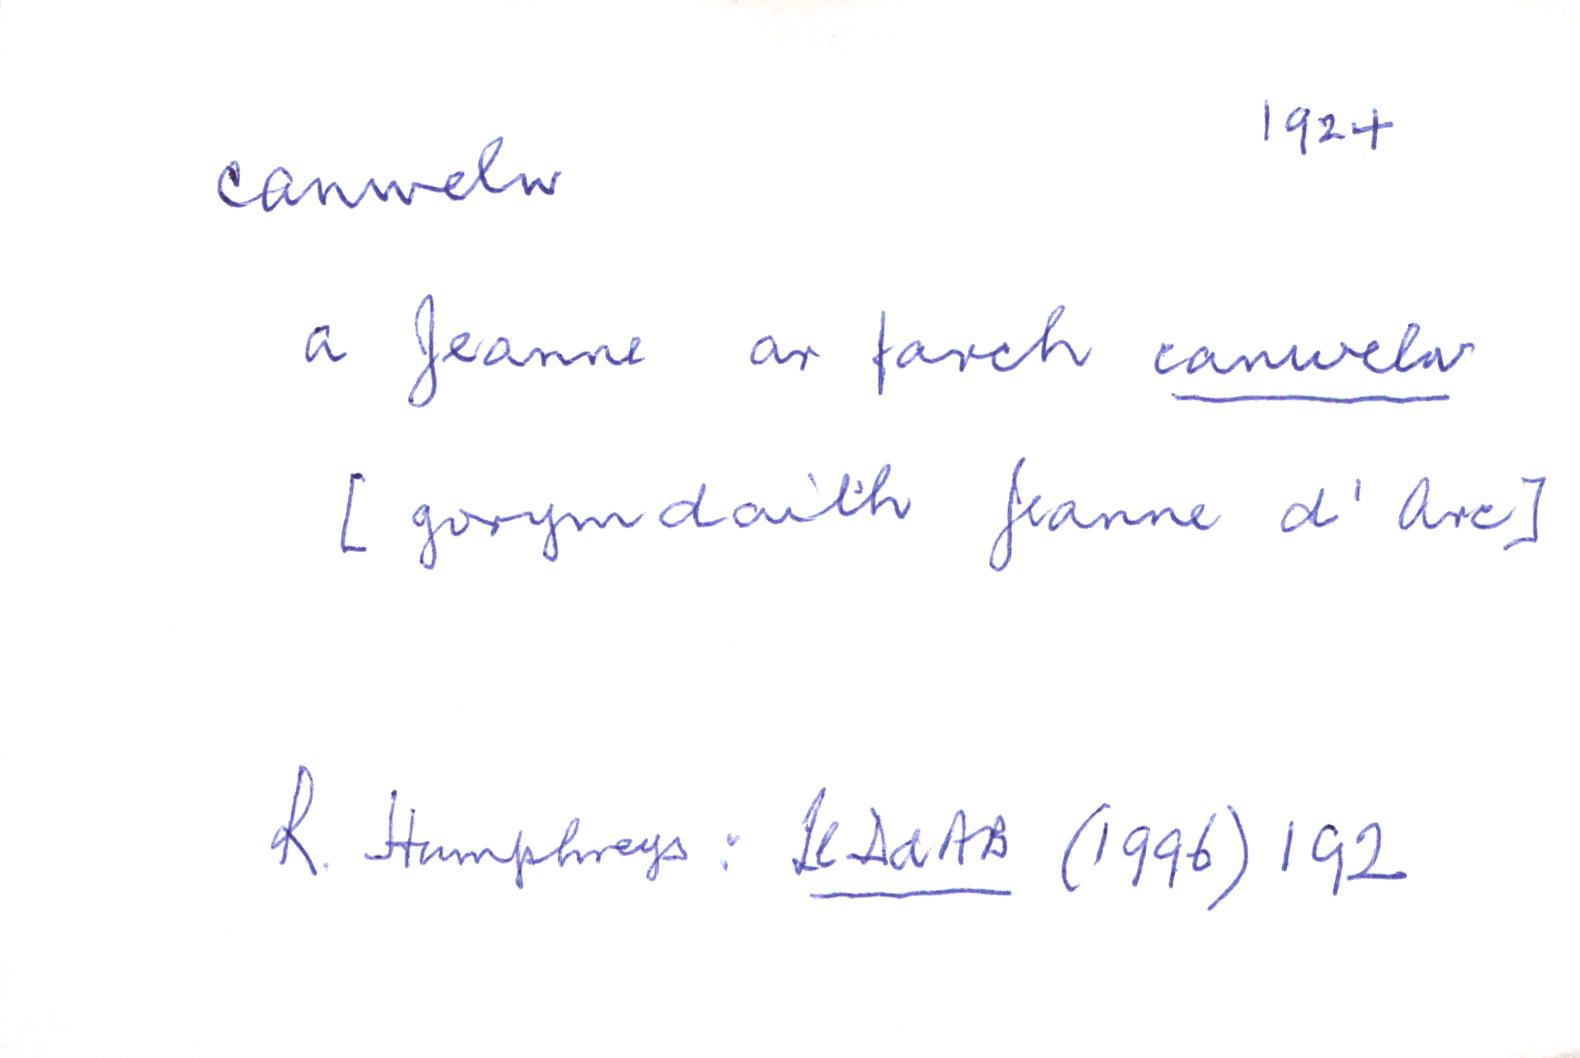 192+
canwelw
a Jeanne ar farch canwelw
[gorymdaith Jeanne d'Arc]
R. Humphreys: (1996) 192